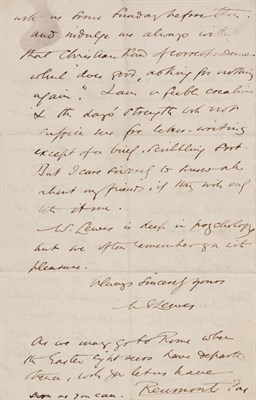 with us some Sunday before then.
and indulge me always with
that Christian kind of correspondence
which does good, asking for nothing
again". I am a feeble creature
& the day's strength will not
suffice me for letter-writing
except of a brief, scribbling sort.
But I care sincerely to know all
about my friends, if they will only
tell it me.
Mr Lewes is deep in psychology
but we often remember you with
pleasure.
Always sincerely yours
M E Lewes
As we may go to Rome when
the Easter sight seers have departed
thence, will you let us have
soon as you can.